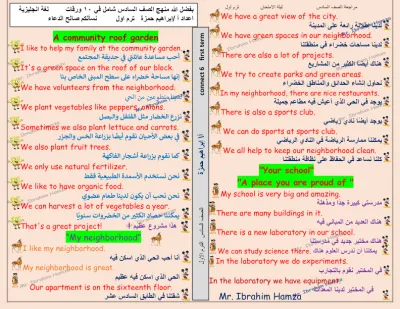 بفضل الله منهج الصف السادس شامل في ١٠ ورقات
لغة انجليزية
اعداد ا/ابراهيم حمزة
ترم اول
نسألكم صالح الدعاء
A community roof garden
I like to help my family at the community garden.
أحب مساعدة عائلتي في حديقة المجتمع
It's a green space on the roof of our block.
إنها مساحة خضراء على سطح المبنى الخاص بنا
We have volunteers from the neighborhood.
لدينا متطوعين من الحي
We plant vegetables like peppers, onions.
نزرع الخضار مثل الفلفل والبصل
Sometimes we also plant lettuce and carrots.
في بعض الأحيان نقوم أيضا بزراعة الخس والجزر
We also plant fruit trees.
كما نقوم بزراعة أشجار الفاكهة
We only use natural fertilizer.
نحن نستخدم الأسمدة الطبيعية فقط
We like to have organic food.
نحن نحب أن يكون لدينا طعام عضوي
We can harvest a lot of vegetables a year.
يمكننا حصاد الكثير من الخضروات سنويا
That's a great project!
هذا مشروع عظيم
"My neighborhood"
I like my neighborhood.
أنا أحب الحي الذي اسكن فيه
My neighborhood is great.
الحي الذي اسكن فيه عظيم
Our apartment is on the sixteenth floor.
شقتنا في الطابق السادس عشر
connect 6 first term
ا/ ابراهيم حمزة
الصف السادس الترم الاول
مراجعة الصف السادس
ليلة الامتحان
ترم اول
We have a great view of the city.
لدينا إطلالة رائعة على المدينة
We have green spaces in my neighborhood.
لدينا مساحات خضراء في منطقتنا
There are also a lot of projects.
هناك أيضا الكثير من المشاريع
We try to create parks and green areas.
نحاول انشاء الحدائق والمناطق الخضراء
In my neighborhood, there are nice restaurants.
يوجد في الحي الذي أعيش فيه مطاعم جميلة
There is also a sports club.
يوجد أيضا نادي رياضي
We can do sports at sports club.
يمكننا ممارسة الرياضة في النادي الرياضي
We all help to keep our neighborhood clean.
كلنا نساعد في الحفاظ على نظافة منطقتنا
"Your school"
"A place you are proud of "
My school is very big and amazing.
مدرستي كبيرة جدا ومذهلة
There are many buildings in it.
هناك العديد من المباني فيه
There is a new laboratory in our school.
هناك مختبر جديد في مدرستنا
We can study science there.
يمكننا دراسة العلوم هناك
In the laboratory we do experiments.
في المختبر نقوم بالتجارب
In the laboratory we have equipment.
في المختبر لدينا المعدات
Mr. Ibrahim Hamza